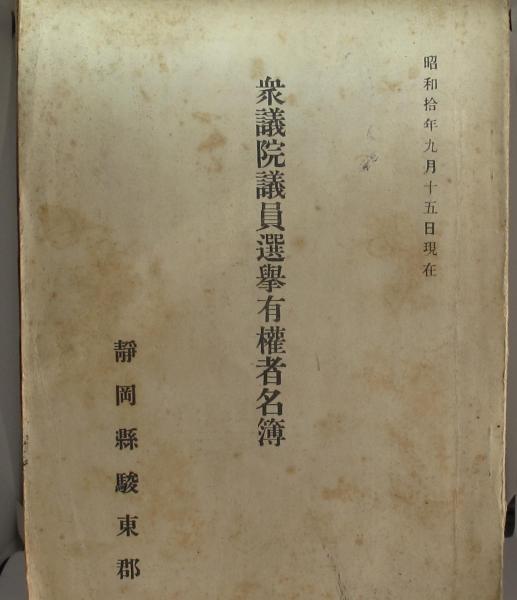 昭和拾年九月十五日現在
衆議院議員選擧有權者名簿
靜岡縣駿東郡